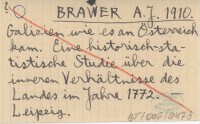 BRAWER A.J. 1910.
Galizien wie es an Österreich
kam. Eine historisch-sta-
tistische Studie über die
inneren Verhältnisse des
Landes im Jahre 1772. —
Leipzig.